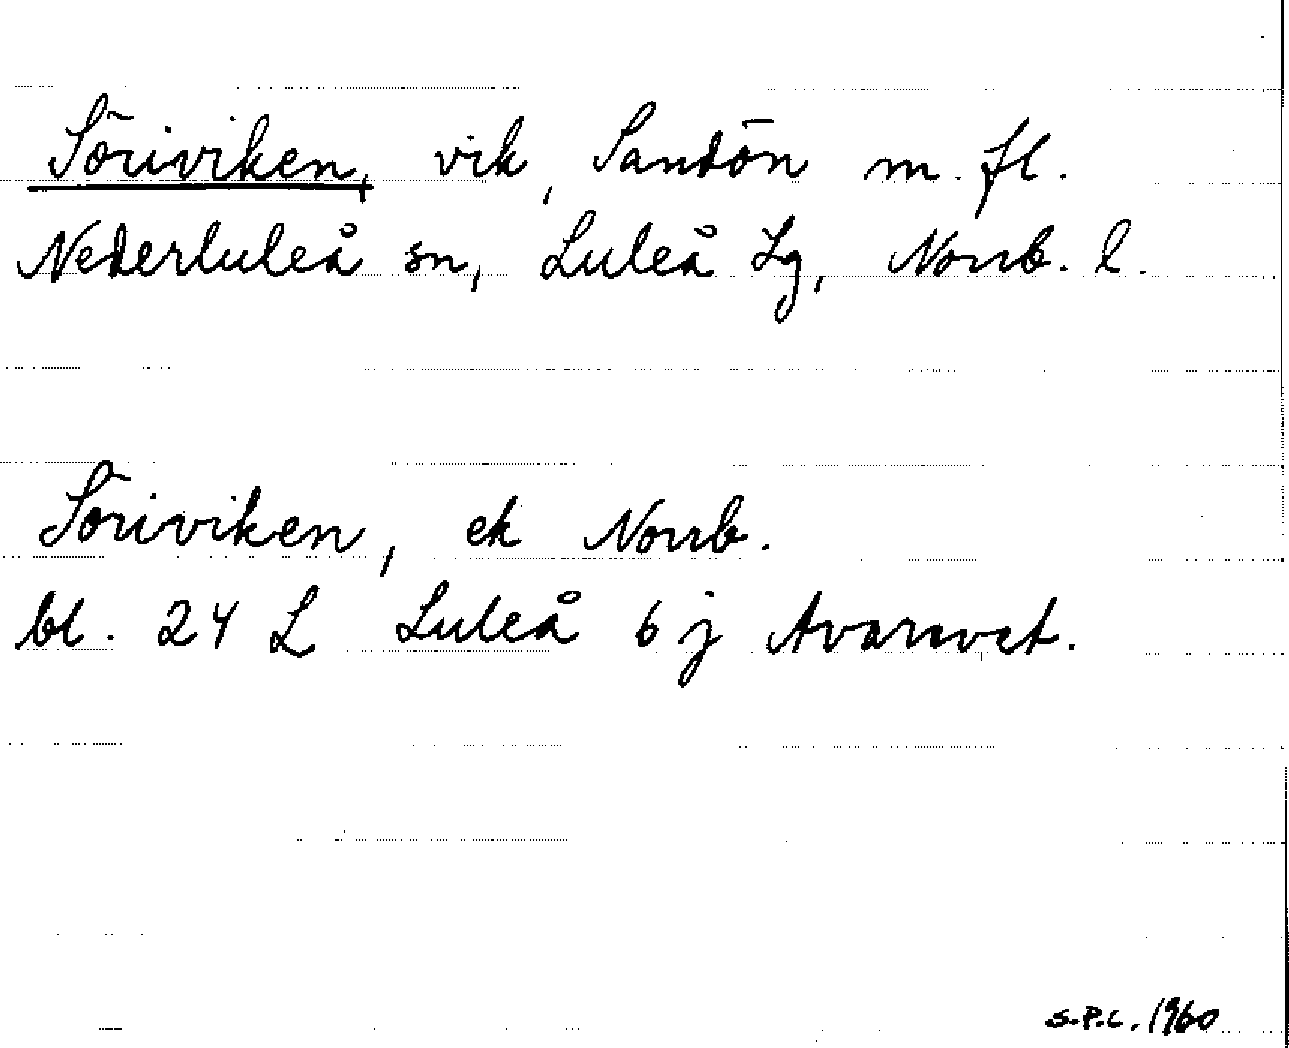 Söriviken, vik, Sandön m. fl.
Nederluleå sn, Luleå Lg, Norrb. l.
Söriviken, ek Norrb.
bl. 24 L Luleå 6 j Avaravet.
S.P.L. 1960